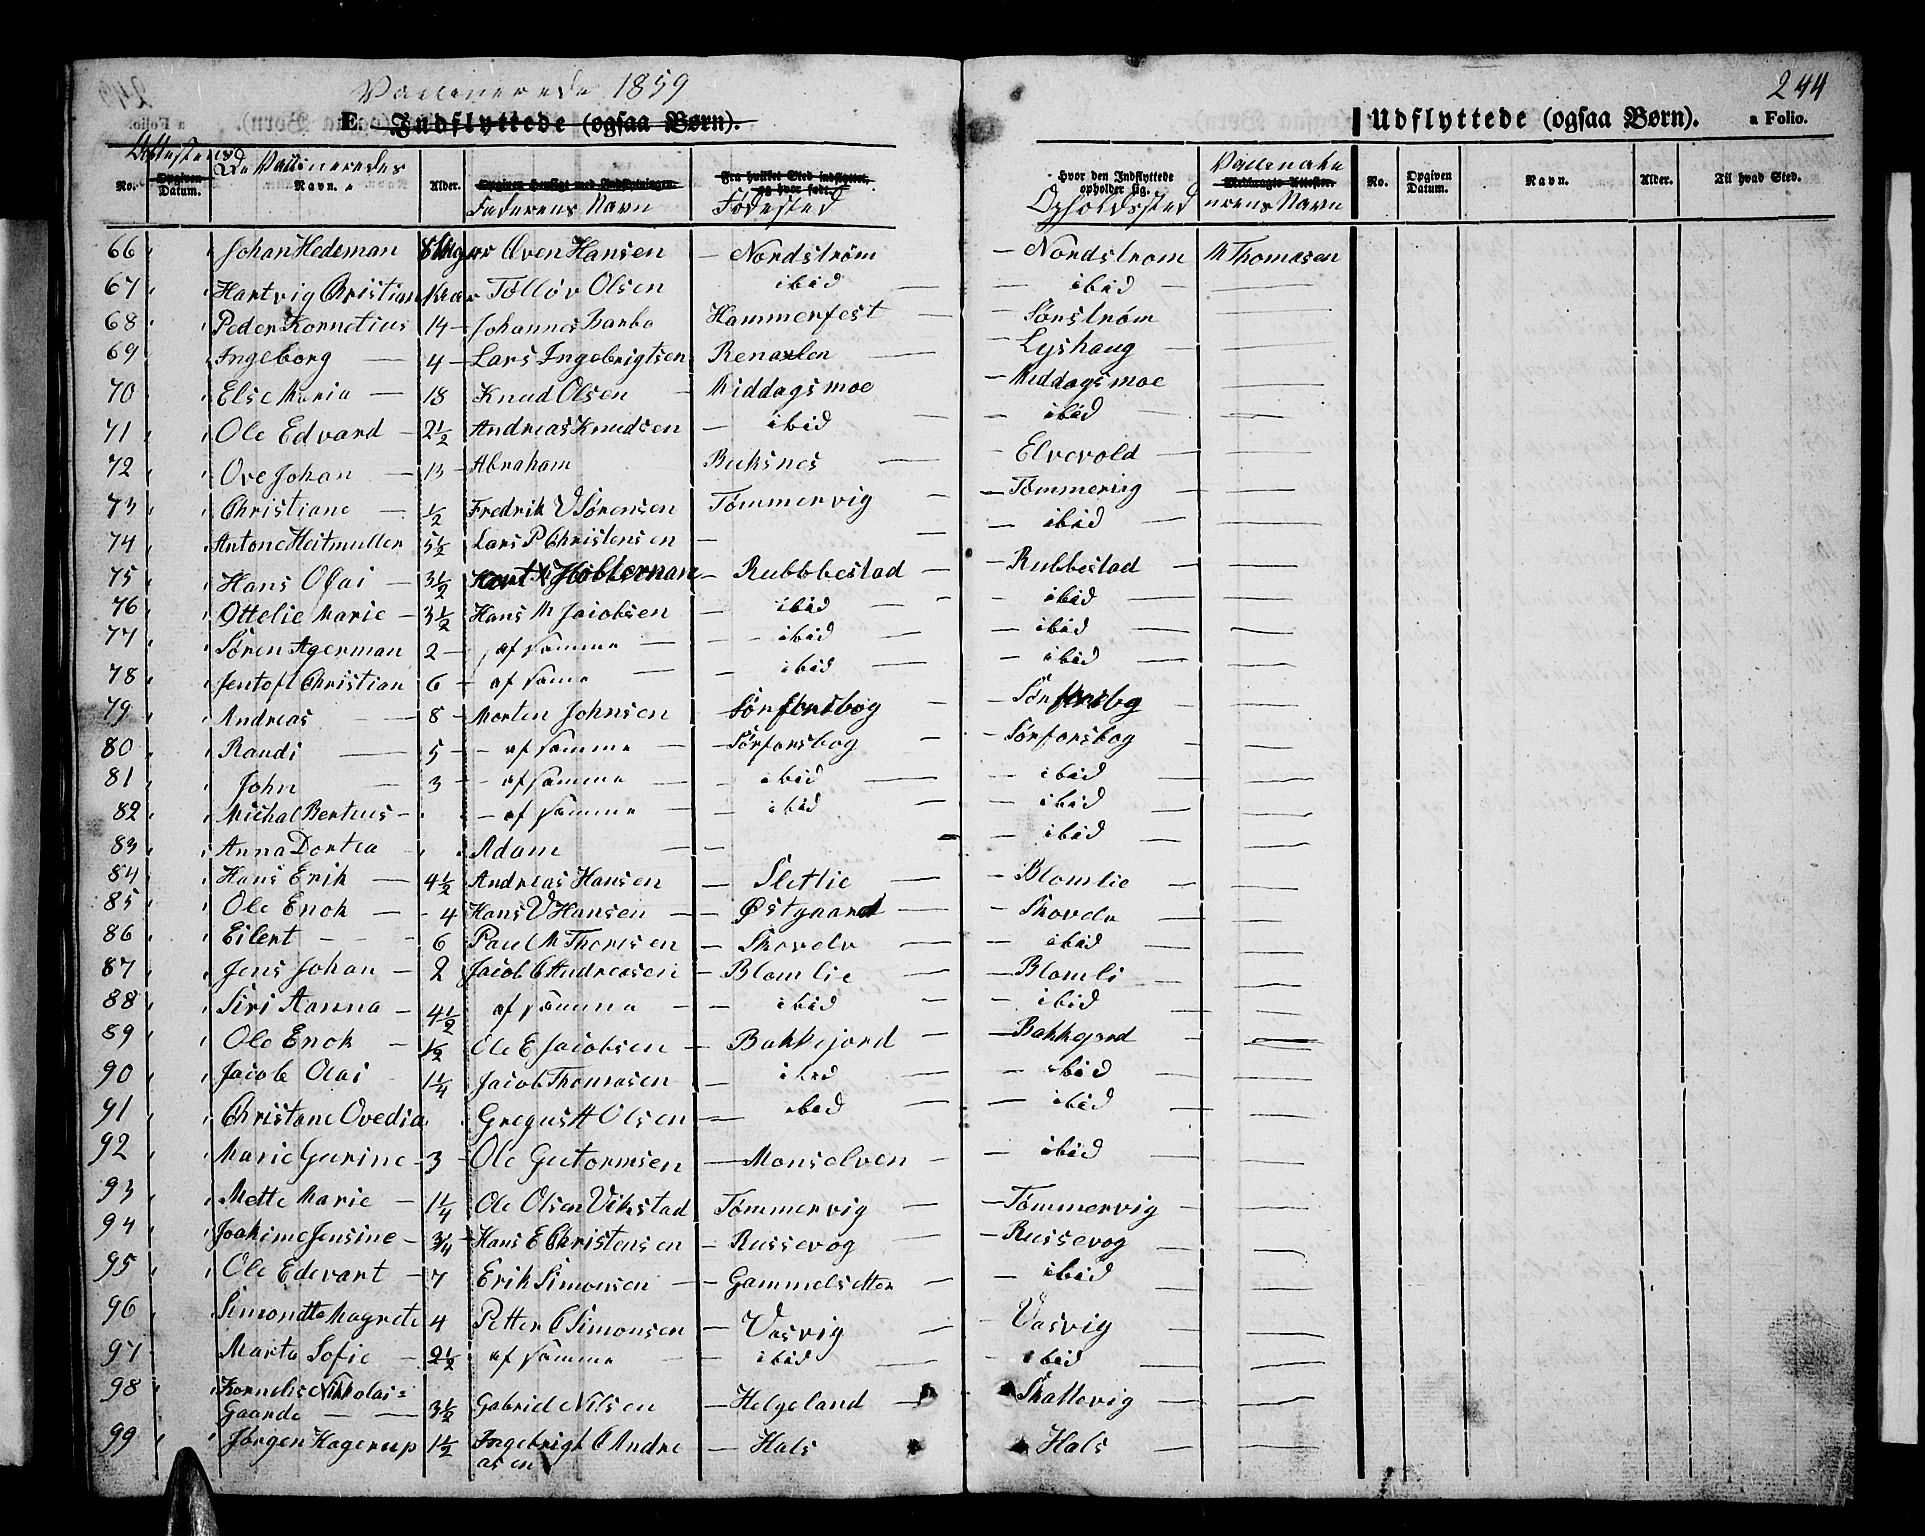 Vaccinerede 1859
244
E. Indflyttede (ogsaa Børn).
Udflyttede (ogsaa Børn).
a Folio.
De Vaccineredes
No. Opgiven Datum. Navn. Alder. Opgiven Hensigt med Indflytningen. Fra hvilket Sted indflyttet, og hvor født. Hvor den Indflyttede opholder sig. Medbragte Attester. No. Opgiven Datum. Navn. Alder. Til hvad Sted.
Faderens Navn Fødested Opholdssted nerens Navn
66 Johan Hedeman Oven Hansen — Nordstrøm — Nordstrom M Thomasen
67 Hartvig Christian Tolløv Olsen ibid — ibid
68 Peder Kornelius 14 - Johannes Barbo Hammerfest — Sørstrøm
69 Ingeborg — 4 - Lars Ingebrigtsen Renaxlen — Lyshaug
70 Else Maria — 18 Knud Olsen - Middagsmoe — Middagsmoe
71 Ole Edvard - 2½ Andreas Knudsen — ibid — ibid
72 Ove Johan — 13 Abraham Buksnes — Elvevold
73 Christiane — ½ Fredrik V Sørensen Tømmervig — Tømmervig
74 Antone Heitmuller 5½ Lars P Christensen — — ibid
75 Hans Olai — 3½ — Rubbbestad — Rubbestad
76 Ottelie Marie - 3½ Hans M Jacobsen — ibid — ibid
77 Søren Agerman 2 - af samme — ibid — ibid
78 Jentoft Christian 6 - af samme — ibid — ibid
79 Andreas — 8 - Morten Johnsen — Sørforsbog — Sørforsbog
80 Randi — 5 - af samme — Sørforsbog — Sørforsbog
81 John — 3 - af samme — ibid — ibid
82 Michal Bertius - - af samme — ibid — ibid
83 Anna Dortea - Adam — — ibid
84 Hans Erik — 4½ Andreas Hansen — Slettlie — Blomlie
85 Ole Enok — 4 Hans V Hansen — Østgaard — Skovelv
86 Eilert — 6 Paul M Thomesen — Skovelv — ibid
87 Jens Johan — 2 Jacob C Andreasen — Blomlie — Blomli
88 Siri Aanna — 4½ af samme — ibid — ibid
89 Ole Enok — ½ Ole E Jacobsen — Bakkejord — Bakkejord
90 Jacob Olai 1¼ Jacob Thomasen — ibid — ibid
91 Christane Ovedia Gregus H Olsen — ibid — ibid
92 Marie Gurine - 3 - Ole Gutormsen — Monselven — ibid
93 Mette Marie — 1¼ Ole Olsen Vikstad Tømmervig — Tømmervig
94 Joakime Jensine - ¾ - Hans E Christensen — Russevog — Russevog
95 Ole Edevart - 7 Erik Simonsen — Gammelsetter — ibid
96 Simondte Magrete 4 Petter C Simonsen — Vasvig — Vasvig
97 Marta Sofie — 2½ af samme — ibid — ibid
98 Kornelis Nikolai=
Gaarde — 3½ Gabriel Nilsen — Helgeland — Skattevig
99 Jørgen Hagerup 1½ Ingebrigt C Andre — Hals — Hals
asen